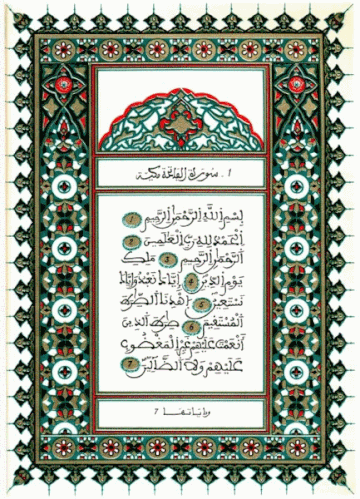 1. سورة الفاتحة مكية
بسم الله الرحمن الرحيم 1
الحمد لله رب العالمين 2
الرحمن الرحيم 3 ملك
يوم الدين 4 إياك نعبد وإياك
نستعين 5 اهدنا الصراط
المستقيم 6 صراط الذين
أنعمت عليهم غير المغضوب
عليهم ولا الضالين 7
وءاياتها 7